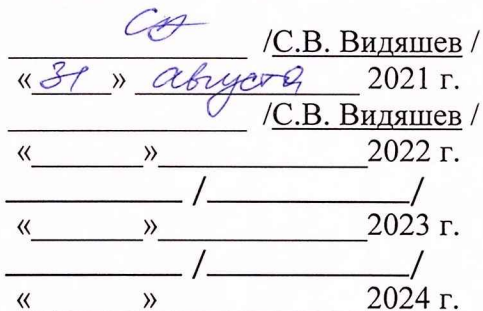 /С.В. Видяшев /
«31» августа 2021 г.
/С.В. Видяшев /
«______»____________2022 г.
__________ /____________/
«______»____________2023 г.
__________ /____________/
« » 2024 г.